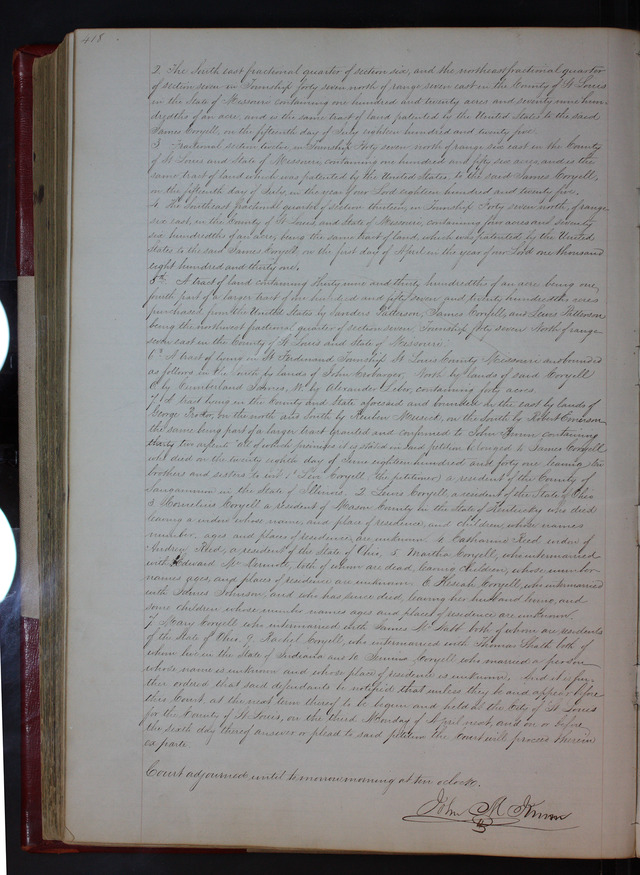 418
2. The South east fractional quarter of section six, and the northeast fractional quarter
of section seven in Township forty seven north of range seven east in the County of St Louis
in the State of Missouri containing one hundred and twenty acres and seventy nine hun-
dredths of an acre, and is the same tract of land patented by the United States to the said
James Coryell, on the fifteenth day of July eighteen hundred and twenty five.
3. Fractional section twelve, in Township Forty seven north, of range six east in the County
of St Louis and State of Missouri, containing one hundred and fifty six acres, and is the
same tract of land which was patented by the United States, to the said James Coryell,
on the fifteenth day of July, in the year of our Lord eighteen hundred and twenty five,
4. The Southeast fractional quarter of section thirteen, in Township Forty seven north, of range
six east, in the County of St Louis and State of Missouri, containing five acres and seventy
six hundredths of an acre, being the same tract of land, which was patented, by the United
States to the said James Coryell, on the first day of April in the year of our Lord one thousand
eight hundred and thirty one,
5th A tract of land containing thirty nine and thirty hundredths of an acre being one
fourth part of a larger tract of one hundred and fifty seven and twenty hundredths acres
purchased from the United States by Sanders Patterson, James Coryell, and Lewis Patterson
being the northwest fractional quarter of section seven Township forty seven North of range
seven east in the County of St Louis and State of Missouri.
6th A tract of being in St Ferdinand Township St Louis County Missouri and bounded
as follows in the North by lands of John North by lands of said Coryell
by Cumberland James, W. by Alexander containing forty acres.
7. A tract being in the County and State aforesaid and bounded in the east by lands of
George on the north and South by Reuben in the South by Robert
the same being part of a larger tract granted and confirmed to John containing
thirty two arpents all of which premises it is stated in said petition belonged to James Coryell
who died on the twenty eighth day of June eighteen hundred and forty one leaving
brothers and sisters to wit 1st Levi Coryell (the petitioner) a resident of the County of
Sangammon in the State of Illinois. 2. Lewis Coryell, a resident of the State of Ohio
3. Cornelius Coryell a resident of Mason County in the State of Kentucky who died
leaving a widow whose name, and place of residence, and children, whose names
number, ages and place of residence, are unknown. 4. Catharine Reed widow of
Andrew Reed, a resident of the State of Ohio, 5. Martha Coryell, who intermarried
with Edward both of whom are dead, leaving children, whose number
names ages, and places of residence are unknown. 6. Keziah Coryell, who intermarried
with James Johnson, and who has since died, leaving her husband living, and
some children whose number names ages and place of residence are unknown
Mary Coryell who intermarried with James both of whom are residents
of the State of Ohio. 9. Rachel Coryell, who intermarried with Thomas both of
whom live in the State of Indiana and 10. Jemima Coryell who married a person
whose name is unknown and whose place of residence is unknown, And it is fur-
ther ordered that said defendants be notified that unless they be and appear before
this Court, at the next term thereof to be begun and held at the City of St Louis
for the County of St Louis, on the third Monday of April next, and on or before
the sixth day thereof answer or plead to said petition the Court will proceed therein
ex parte.
Court adjourned until tomorrow morning at ten oclock.
John M